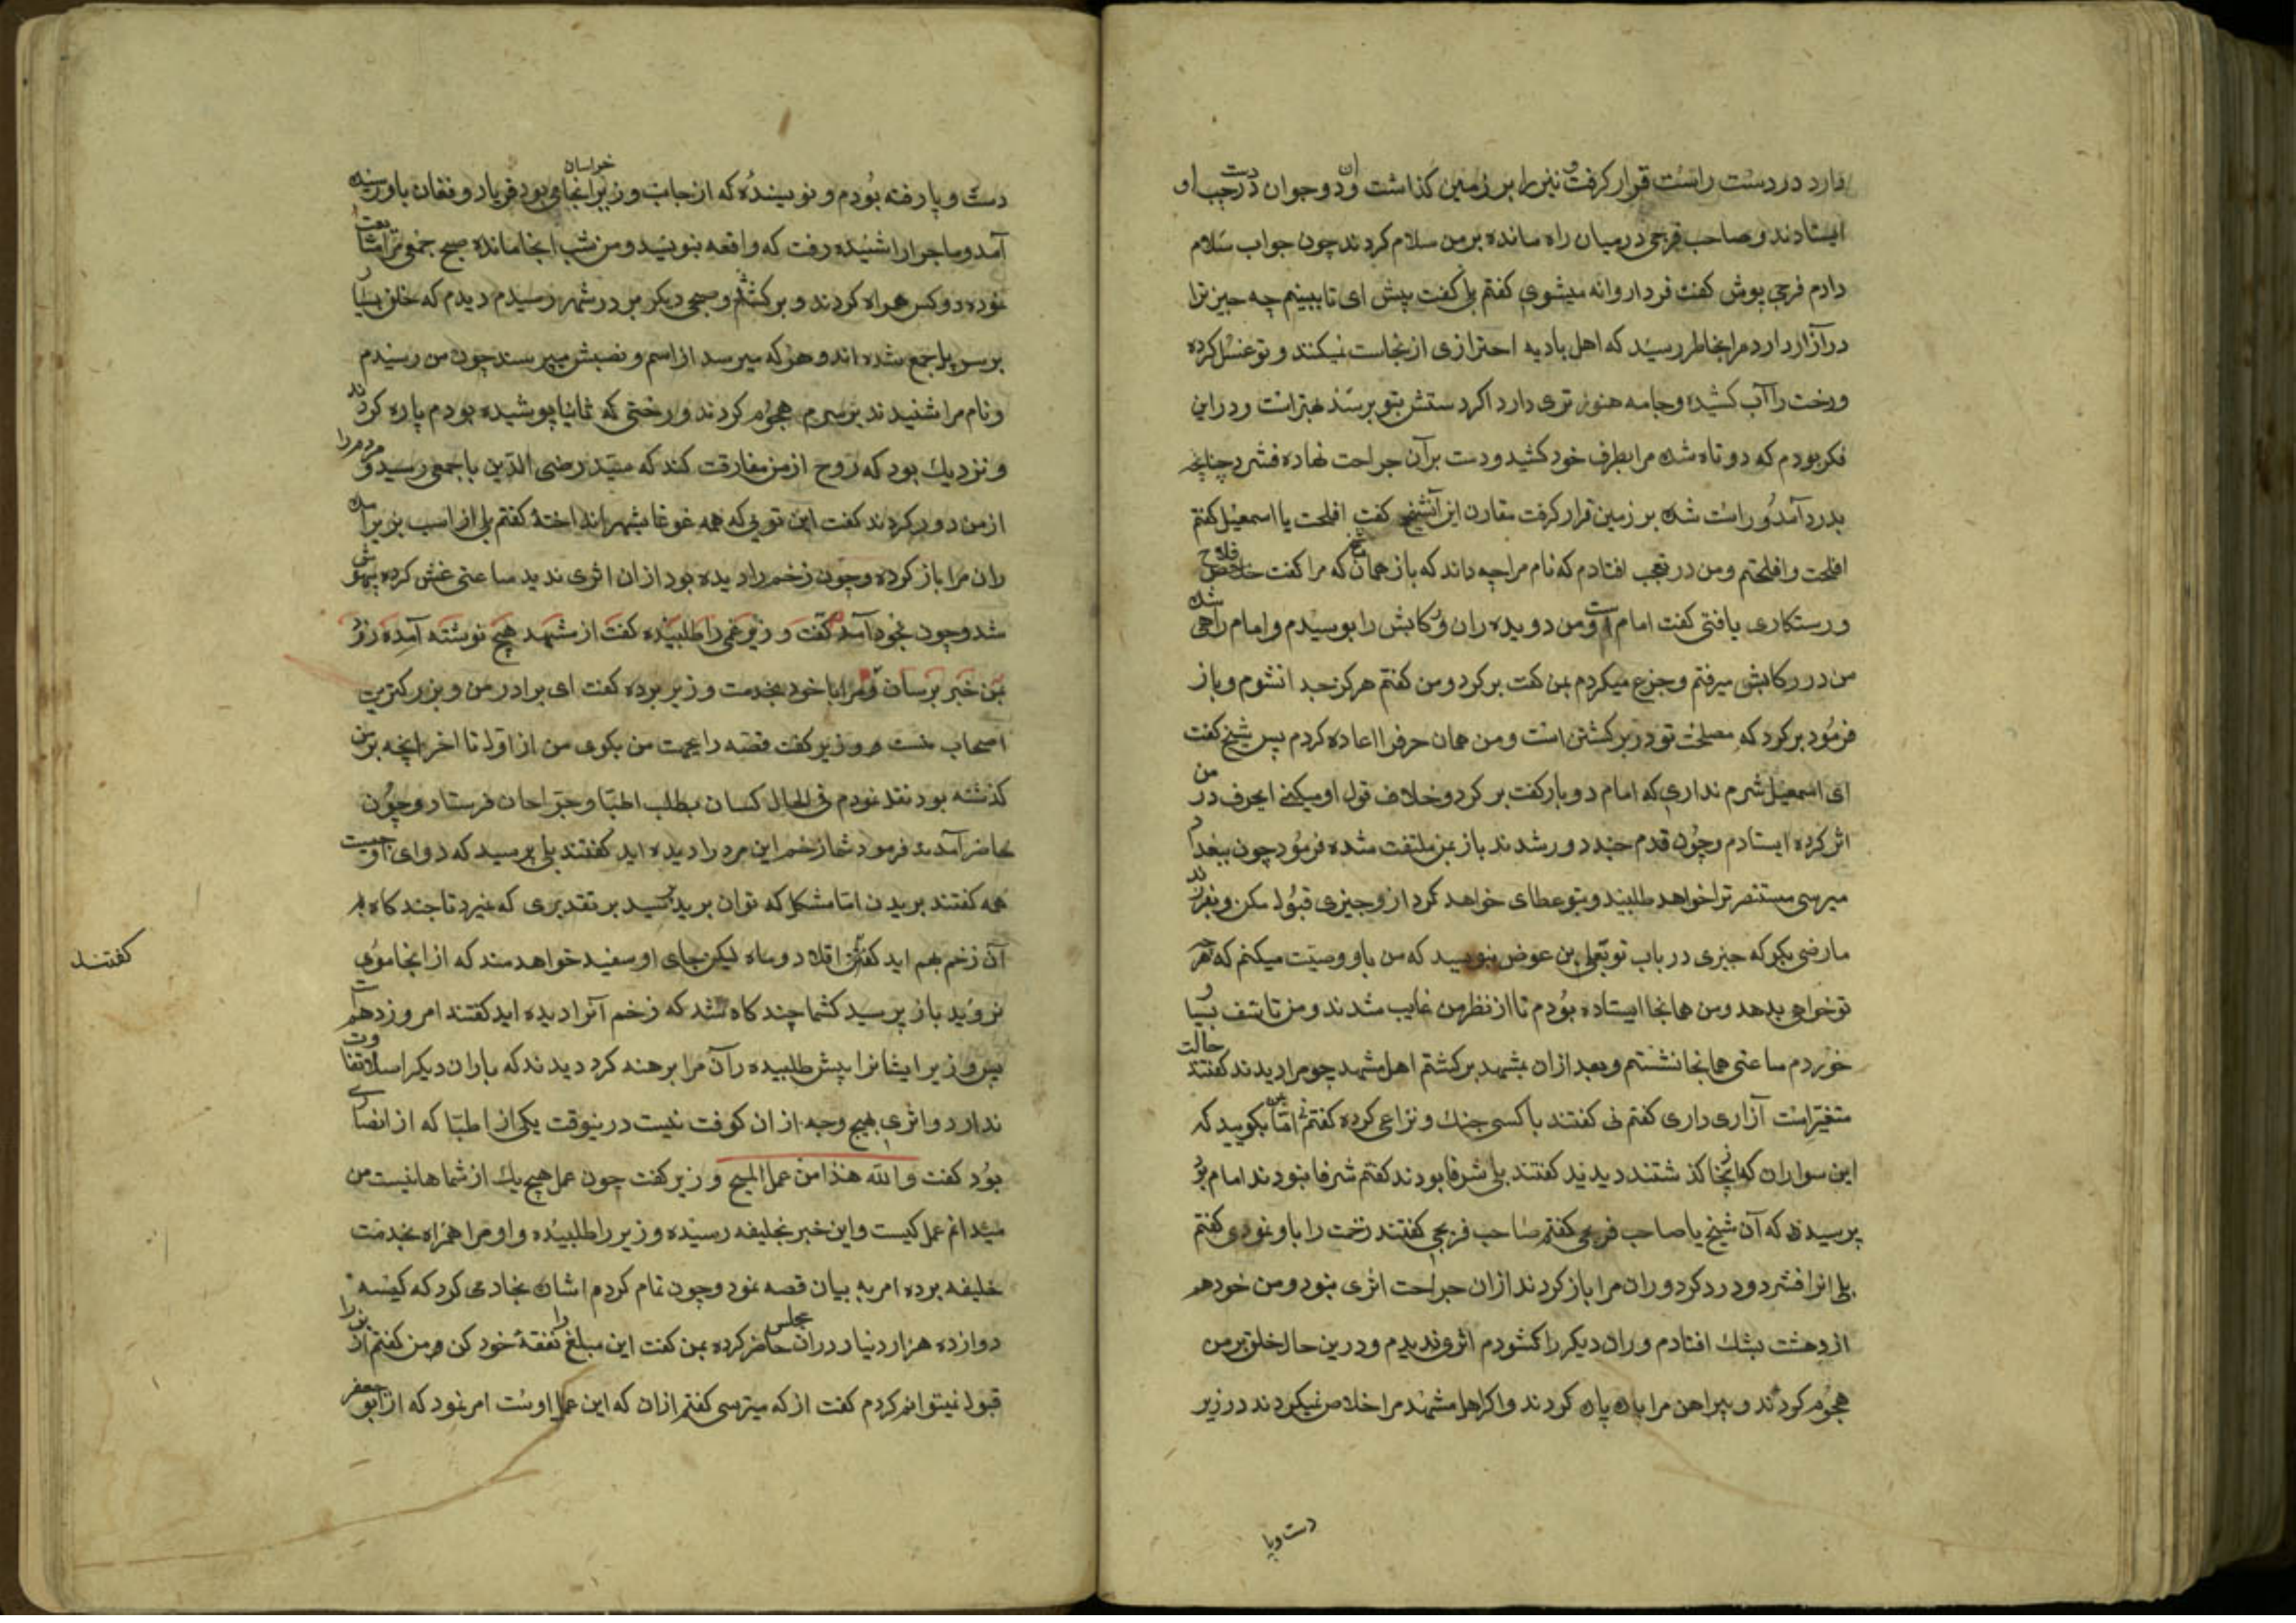 دارد در دست راست قرار گرفت و نیزه را بر زمین گذاشت و آن دو جوان در دست چپ او
ایستادند و صاحب فرجی در میان راه مانده بر من سلام کردند چون جواب سلام
دادم فرجی پوش گفت فردا روانه میشوی گفتم بلی گفت پیش ای تا ببینم چه چیز ترا
در آزار دارد مرا بخاطر رسید که اهل بادیه احترازی از نجاست نمیکنند و تو غسل کرده
و رخت را آب کشیده و جامه هنوز تری دارد اگر دستش بتو نرسد بهتر است و در این
فکر بودم که دو تاه شده مرا بطرف خود کشید و دست بر آن جراحت نهاده فشرد چنانچه
بدرد آمد و راست شده بر زمین قرار گرفت مقارن این آنشیخ گفت افلحت یا اسمعیل گفتم
افلحت و افلحتم و من در تعجب افتادم که نام مرا چه داند که باز همان شیخ که مرا گفت خلاص فلاح
و رستکاری یافتی گفت امام است و من دویده ران و رکابش را بوسیدم و امام راهی شده
من در رکابش میرفتم و جزع میکردم بمن گفت برکرد و من گفتم هرگز جدا نشوم و باز
فرمود برکرد که مصلحت تو در برکشتن است و من همان حرف را اعاده کردم پس شیخ گفت
ای اسمعیل شرم نداری که امام دو بار گفت برکرد و خلاف قول او میکنی ایحرف در من
اثر کرده ایستادم و چون قدم چند دور شدند باز بمن ملتفت شده فرمود چون ببغداد
میرسی مستنصر ترا خواهد طلبید و بتو عطای خواهد کرد از و چیزی قبول مکن و بفرزند
ما رضی بگو که چیزی در باب تو بعلی بن عوض بنویسد که من باو وصیت میکنم که هر چه
تو خواهی بدهد و من همانجا ایستاده بودم تا از نظر من غایب شدند و من تاسف بسیار
خوردم ساعتی همانجا نشستم و بعد از ان بمشهد برکشتم اهل مشهد چو مرا دیدند گفتند حالت
متغیر است آزاری داری گفتم نی گفتند با کسی جنک و نزاعی کرده گفتم نه اما بمن بگویید که
این سواران که اینجا گذشتند دیدید گفتند بلی شرفا بودند گفتم شرفا نبودند امام بود
پرسیدند که آن شیخ یا صاحب فرجی گفتم صاحب فرجی گفتند زخمت را باو نمودی گفتم
بلی انرا فشرد و درد کرد و ران مرا باز کردند از ان جراحت اثری نبود و من خود هم
از دهشت بشک افتادم و ران دیگر را کشودم اثری ندیدم و درین حال خلق بر من
هجوم کردند و پیراهن مرا پاره پاره کردند و اگر اهل مشهد مرا خلاص نمیکردند در زیر
دست و پا
دست و پا رفته بودم و نویسنده که از جانب وزیر خراسان انجا می بود فریاد و فغان باو رسیده
آمد و ماجرا را شنیده رفت که واقعه بنویسد و من شب انجا مانده صبح جمعی مرا مشایعت
نموده دو کس همراه کردند و برکشتم و صبحی دیگر بر در شهر رسیدم دیدم که خلق بسیار
بر سر پل جمع شده اند و هر که میرسد از اسم و نصبش میپرسند چون من رسیدم
و نام مرا شنیدند بر سرم هجوم کردند و رختی که ثانیا پوشیده بودم پاره کردند
و نزدیک بود که روح از من مفارقت کند که سید رضی الدین با جمعی رسید و مردم را
از من دور کردند گفت این تویی که همه غوغا بشهر انداختهٔ گفتم بلی از اسب بزیر آمده
ران مرا باز کرده و چون زخم را دیده بود از ان اثری ندید ساعتی غش کرده بیهوش
شد و چون بخود آمد گفت وزیر مرا طلبیده گفت از مشهد هیچ نوشته آمده زود
بمن خبر برسان و مرا با خود بخدمت وزیر برده گفت ای برادر من و بزرکترین
اصحاب منست وزیر گفت قصه را بجهت من بکوی من از اول تا اخر انچه بر من
گذشته بود نقل نمودم فی الحال کسان بطلب اطبا و جراحان فرستاد و چون
حاضر آمدند فرمود شما زخم این مرد را دیده اید گفتند بلی پرسید که دوای او چیست
همه گفتند بریدن اما مشکل که توان برید پرسید بر تقدیری که نمیرد تا چند گاه
آن زخم بهم اید گفتند اقلا دو ماه لیکن جای او سفید خواهد ماند که از انجا موی
نروید باز پرسید که شما چند گاه شد که زخم آنرا دیده اید گفتند امروز دهم است
پس وزیر ایشانرا پیش طلبیده ران مرا برهنه کرد دیدند که با ران دیگر اصلا تفاوت
ندارد و اثری بهیچ وجه از ان کوفت نیست درینوقت یکی از اطبا که از نصاری
بود گفت والله هذا من عمل المسیح وزیر گفت چون عمل هیچ یک از شماها نیست من
میدانم عمل کیست و این خبر بخلیفه رسیده وزیر را طلبیده و او مرا همراه بخدمت
خلیفه برده امر به بیان قصه نمود و چون تمام کردم اشاره بخادمی کرد که کیسه
دوازده هزار دنیار در ان مجلس حاضر کرده بمن گفت این مبلغ را نفقهٔ خود کن و من گفتم
قبول نمیتوانم کردم گفت از که میترسی گفتم از ان که این عمل اوست امر نمود که از ابو جعفر
گفتند